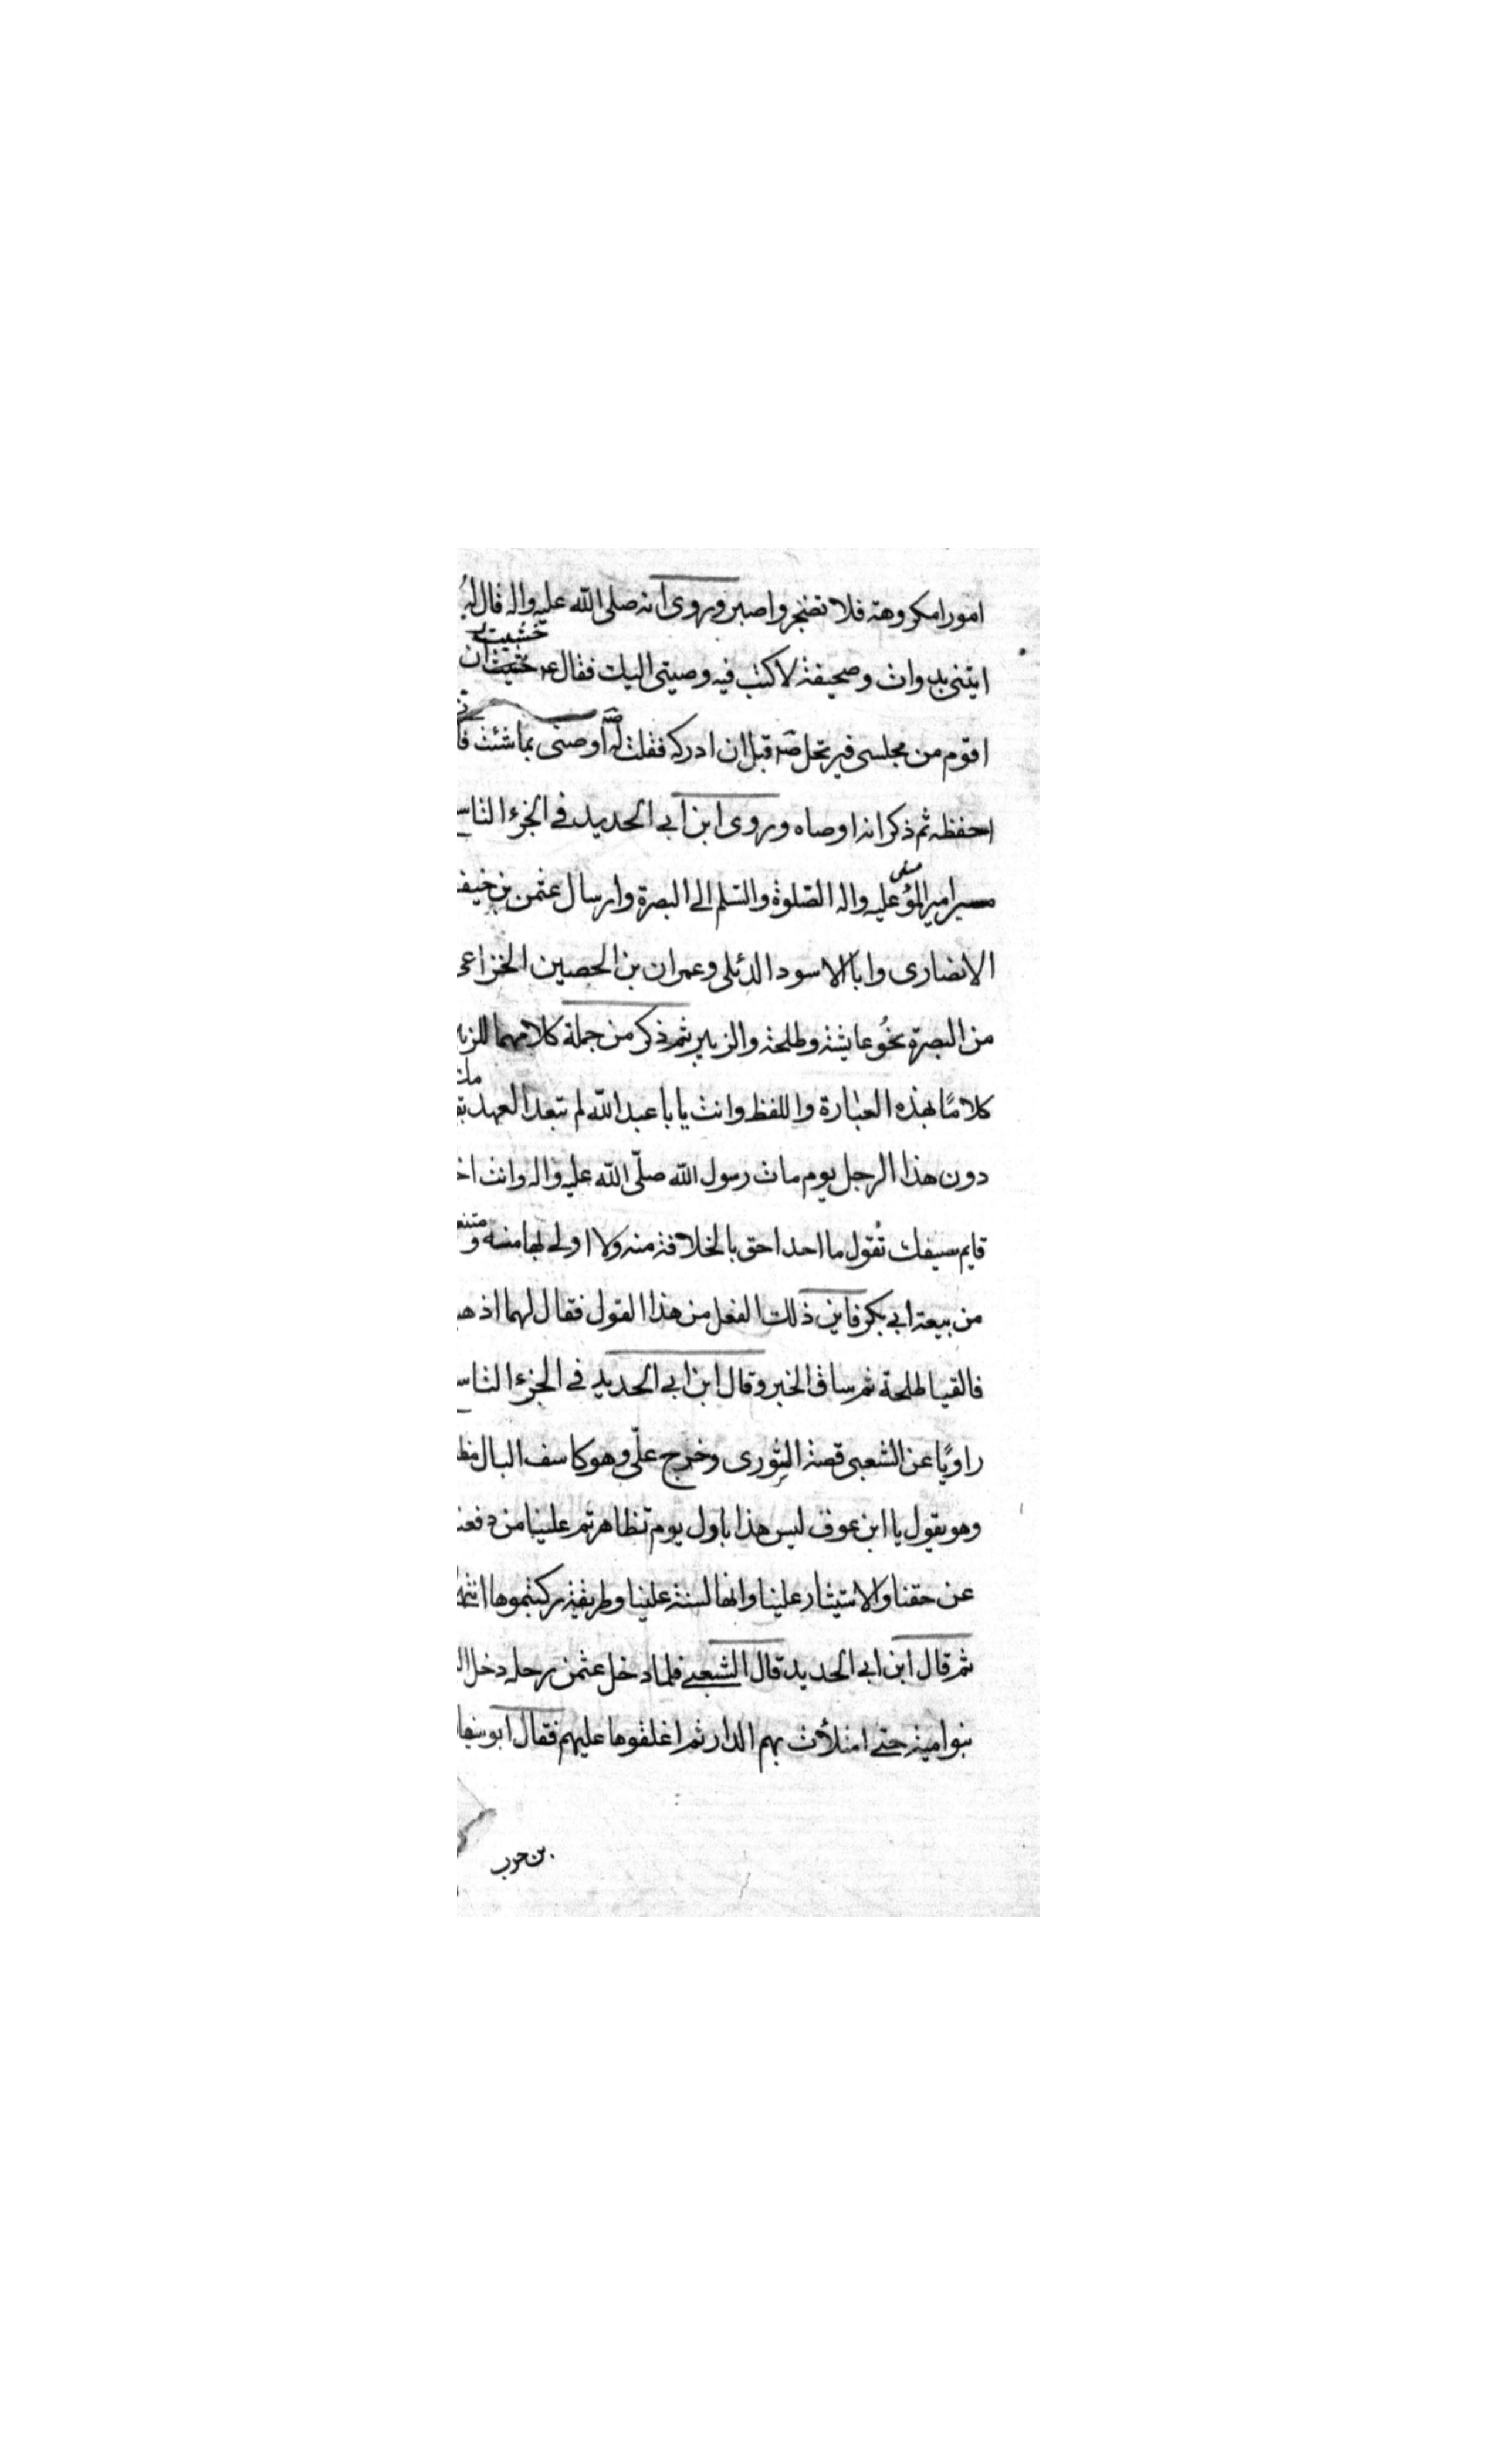 امورا مكروهة فلا تضجر واصبر وروى انه صلى الله عليه واله قال له
ايتنى بدوات وصحيفة لاكتب فيه وصيتى اليك فقال ع خشيت ان
اقوم من مجلسى فيرتحل ص قبل ان ادركه فقلت له اوصنى بما شئت
احفظه ثم ذكر انه اوصاه وروى ابن ابى الحديد فى الجزء التاس
مسير امير المؤمنين عليه واله الصلوة والسلم الى البصرة وارسال عثمن بن حنيف
الانصارى وابا الاسود الدئلى وعمران بن الحصين الخزاعى
من البصرة نحو عايشة وطلحة والزبير ثم ذكر من جملة كلامهما للزبير
كلامًا بهذه العبارة واللفظ وانت يا با عبد الله لم تبعد العهد
دون هذا الرجل يوم مات رسول الله صلّى الله عليه واله وانت
قايم سيفك تقول ما احد احق بالخلافة منه ولا اولى بها منه و
من بيعة ابى بكر فاين ذلك الفعل من هذا القول فقال لهما اذهبا
فالقيا طلحة ثم ساق الخبر وقال ابن ابى الحديد فى الجزء التاس
راويًا عن الشعبى قصة الشورى وخرج علّى وهو كاسف البال
وهو يقول يا ابن عوف ليس هذا باول يوم تظاهرتم علينا من دفعنا
عن حقنا والاستيثار علينا وانها لسنة علينا وطريقة تركتموها انتهى
ثم قال ابن ابى الحديد قال الشعبى فلما دخل عثمن رحله دخل
بنو امية حتى امتلأت بهم الدار ثم اغلقوها عليهم فقال ابو سفيان
بن حرب